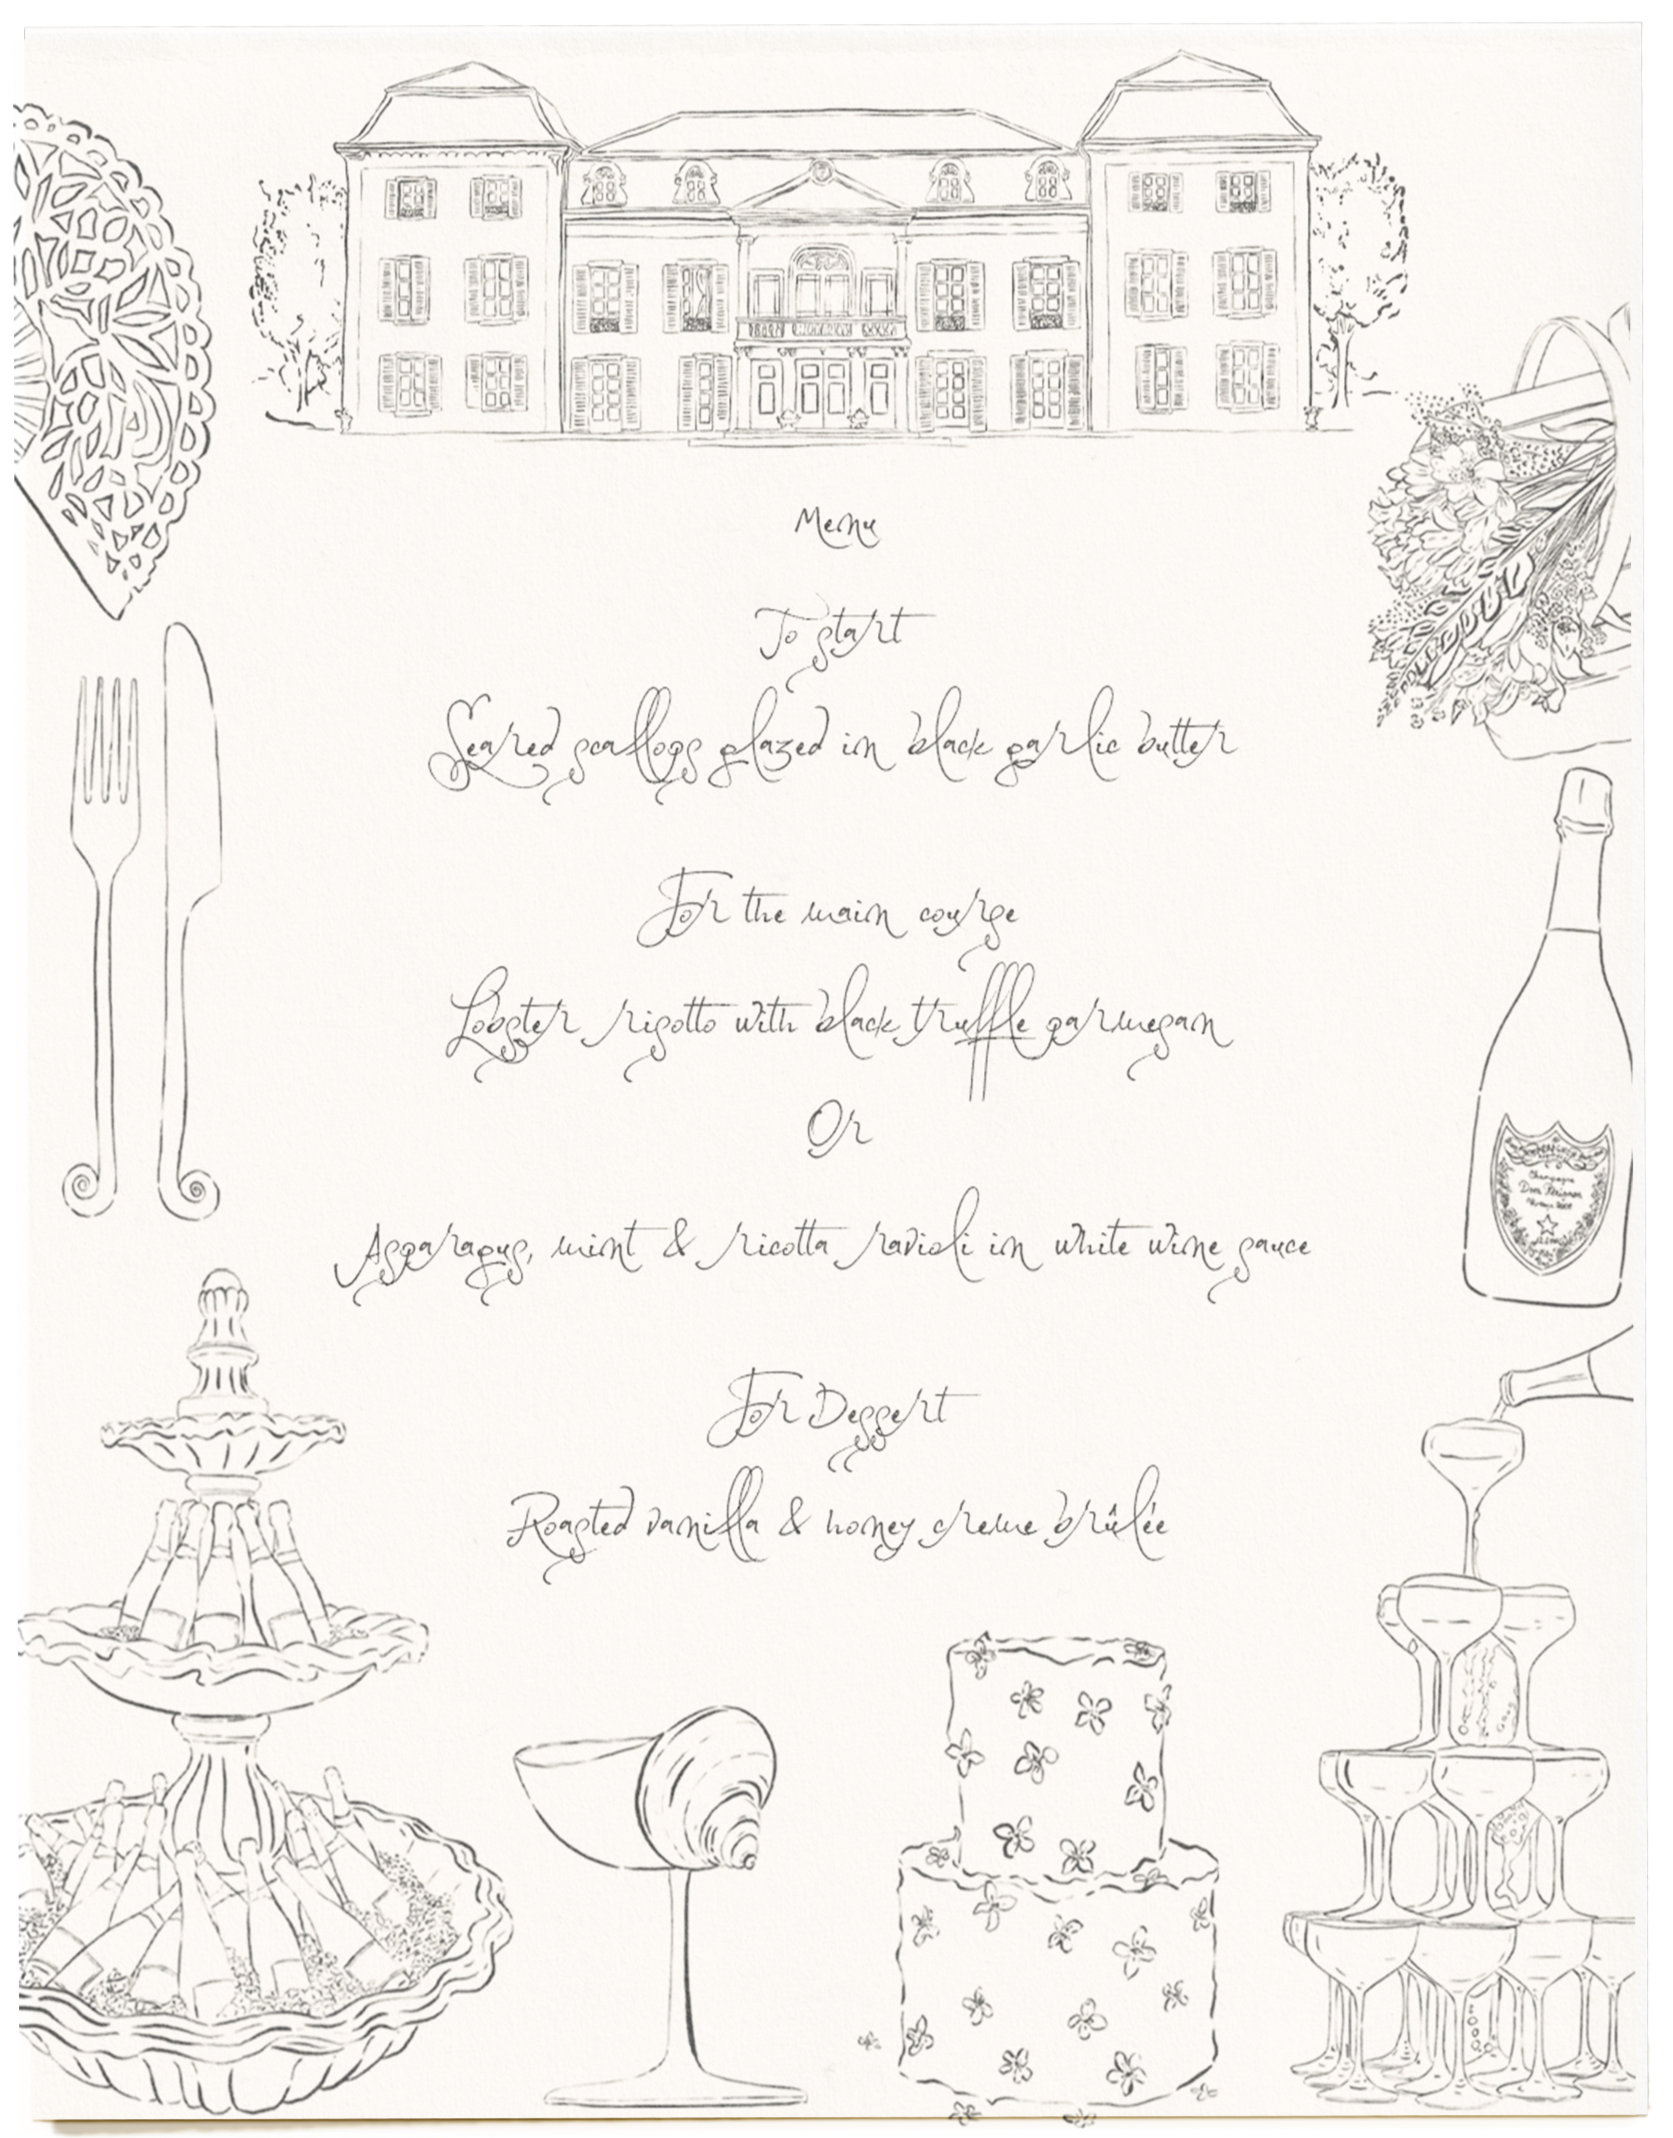 Menu
To start
Seared scallops glazed in black garlic butter
For the main course
Lobster risotto with black truffle parmesan
Or
Asparagus, mint & ricotta ravioli in white wine sauce
For Dessert
Roasted vanilla & honey creme brûlée
Champagne
Dom Pérignon